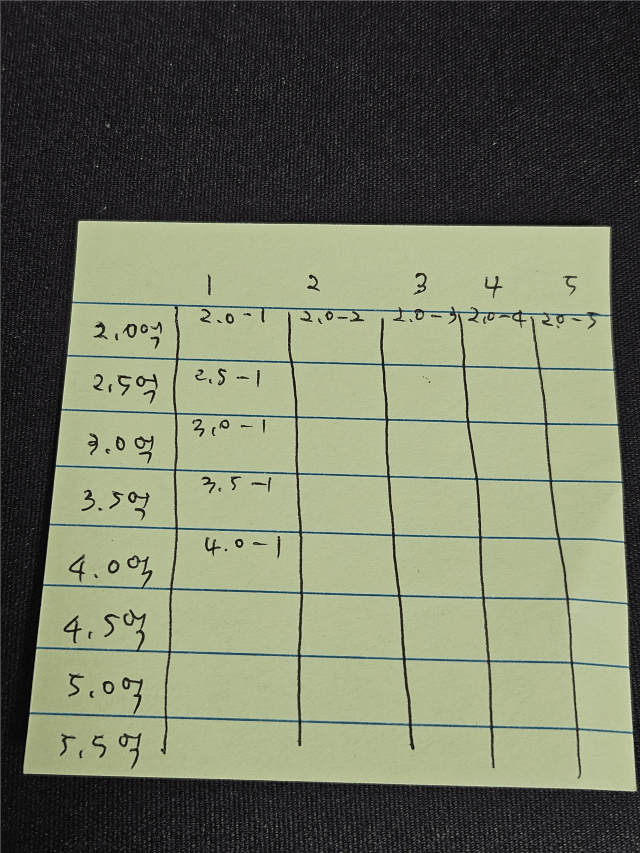 1 2 3 4 5
2.0억 2.0-1 2.0-2 2.0-3 2.0-4 2.0-5
2.5억 2.5-1
3.0억 3.0-1
3.5억 3.5-1
4.0억 4.0-1
4.5억
5.0억
5.5억